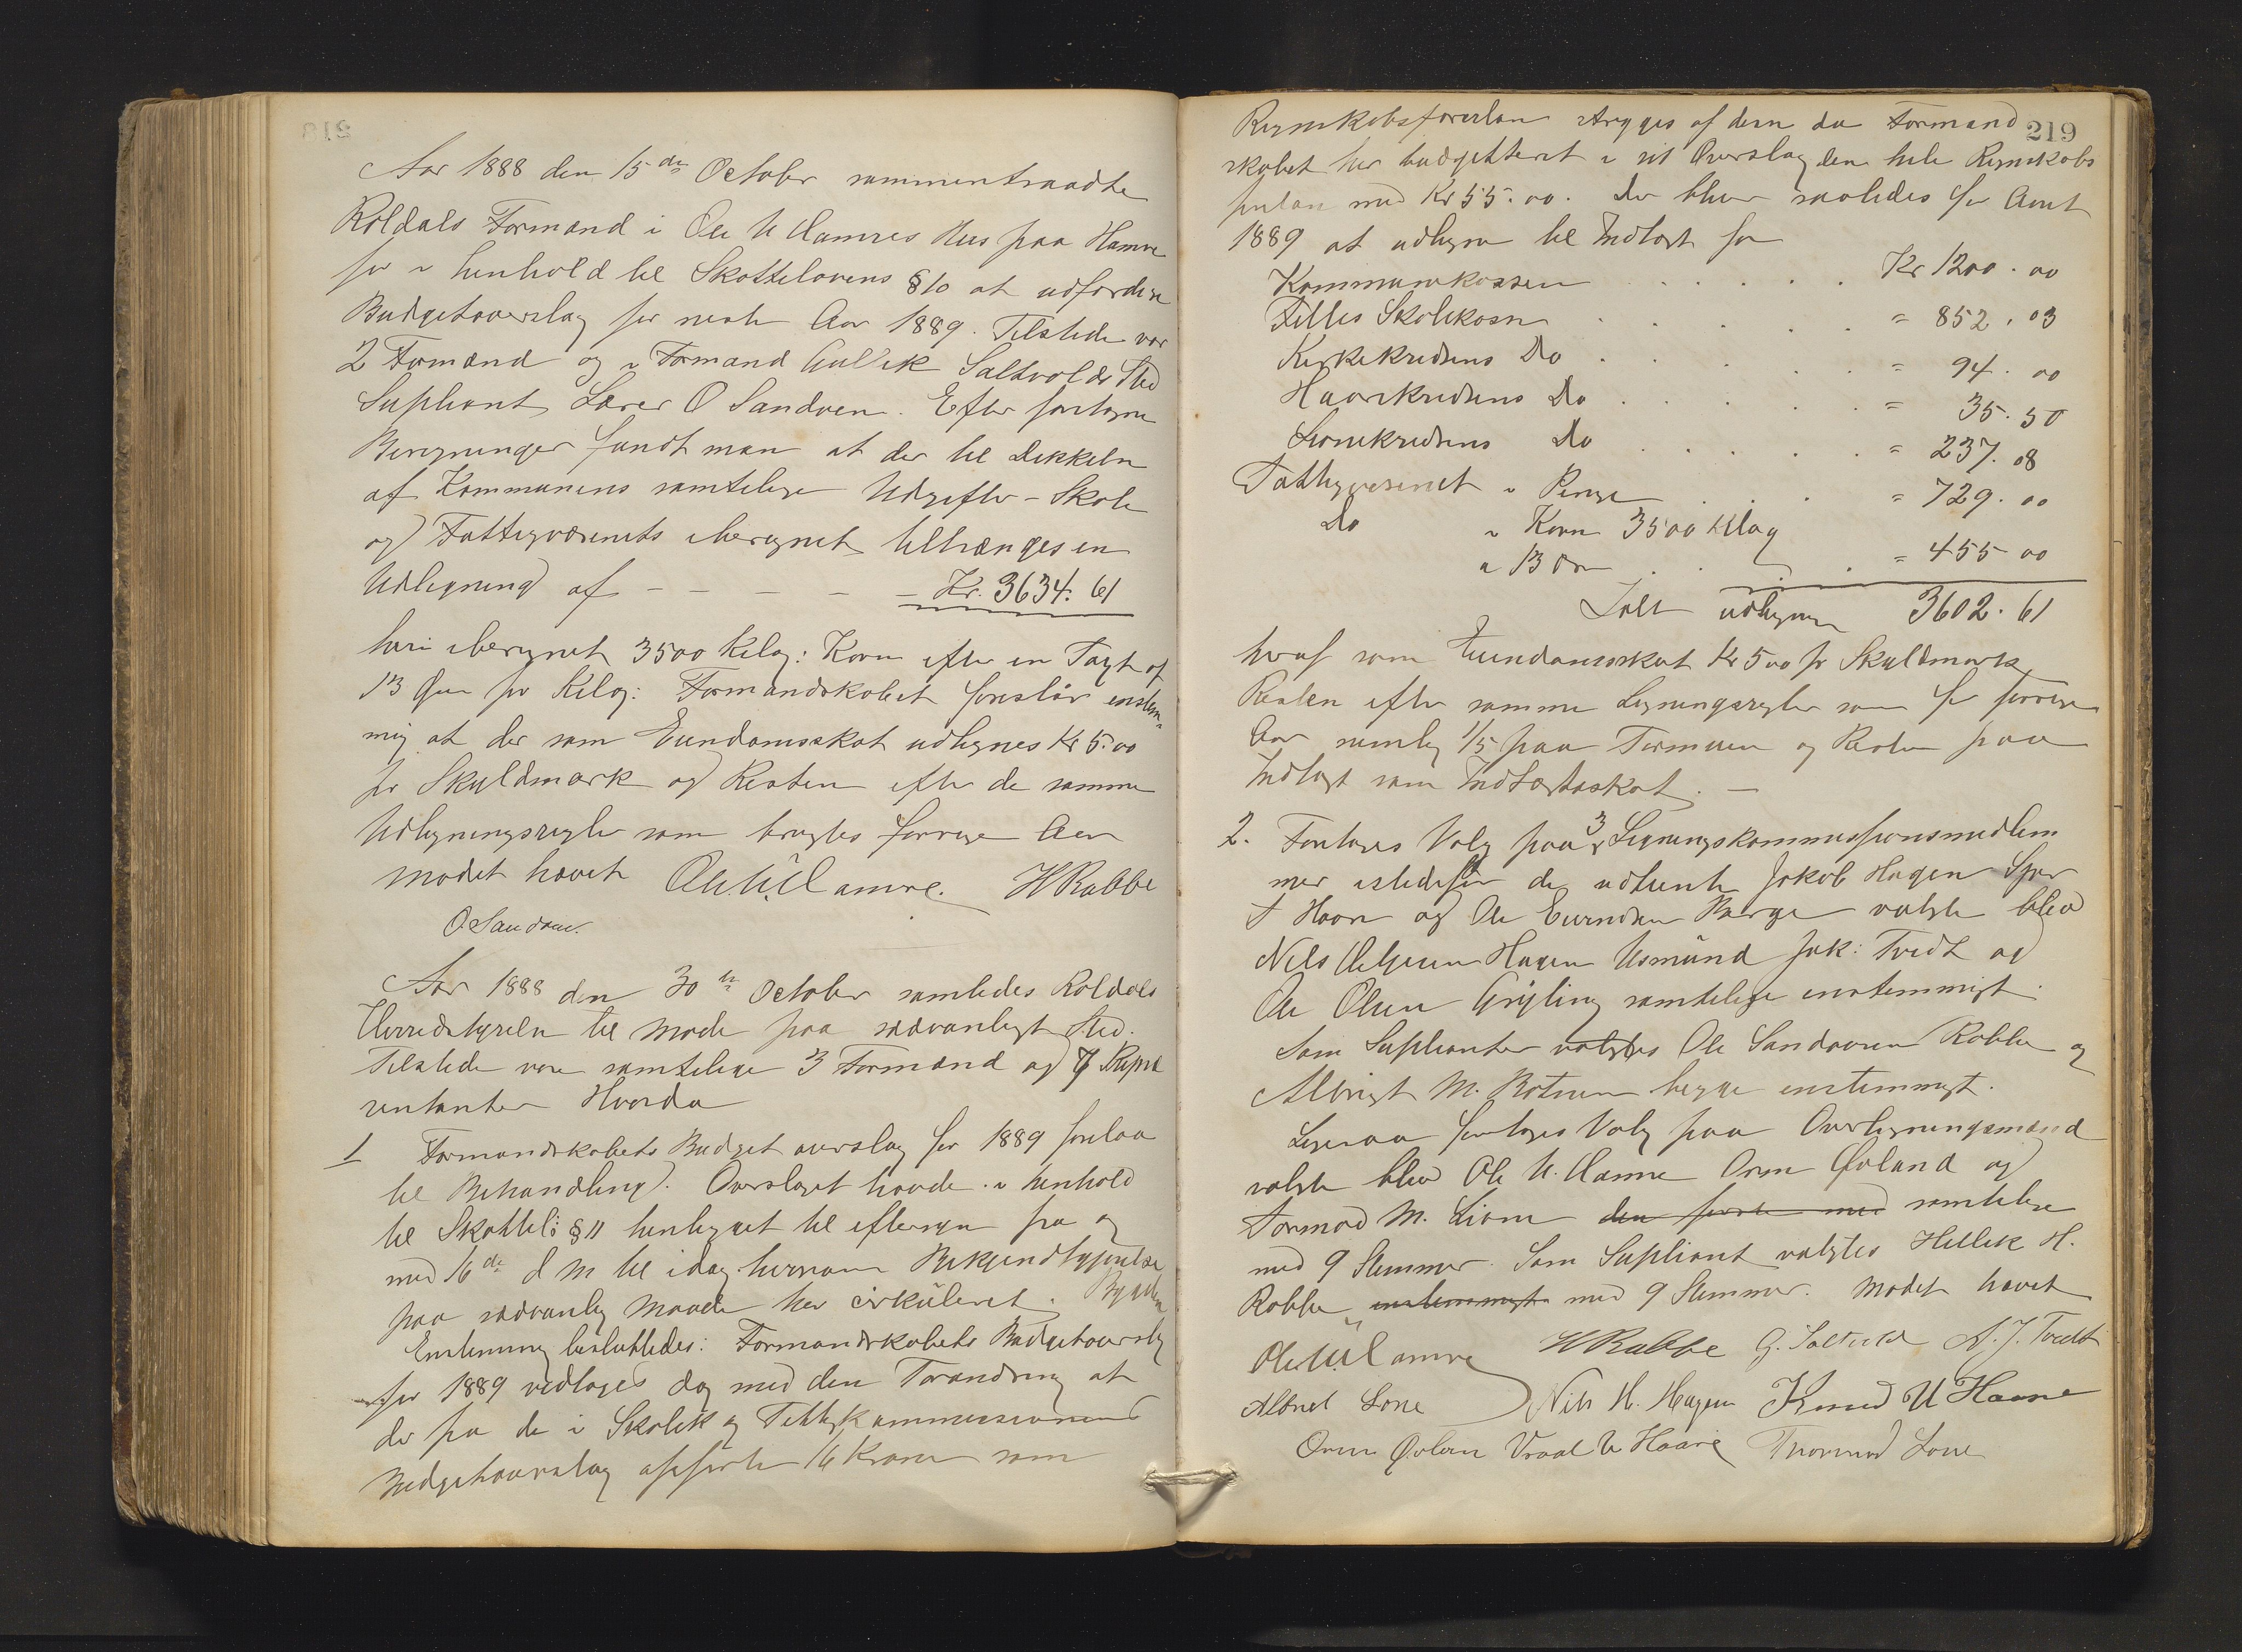 Aar 1888 den 15de October sammentraadte
Røldals Formænd i Ole U Hamres Hus paa Hamre
for i Henhold til Skattelovens § 10 at udfærdige
Budgetoverslag for neste Aar 1889. Tilstede var
2 Formænd og i Formand Gullek Saltvolds Sted
Supliant Lærer O Sandven. Efter foretagne
Beregninger fandt man at der til Dekkelse
af Kommunens samtelige Udgifter - Skole
og Fattigvæsenets iberegnet tiltrænges en
Udligning af - - - - - Kr. 3634. 61
heri iberegnet 3500 Kilog: Korn efter en Taxt af
13 Øre pr Kilog: Formandskabet foreslår enstem-
mig at der som Eiendomsskat udlignes Kr 5.00
pr Skyldmark og Resten efter de samme
Udligningsregler som brugtes forrige Aar
Mødet hævet Ole U. Hamre. H Rabbe
O Sandven.
Aar 1888 den 30te October samledes Røldals
Herredstyrelse til Møde paa sædvanligt Sted.
Tilstede vare samtelige 3 Formænd og 7 Repræ
sentanter Hvorda
1 Formandskabets Budget overslag for 1889 forelaa
til Behandling. Overslaget havde i Henhold
til Skattel: § 11 henligget til eftersyn fra og
med 16de d M til idag hvorom Bekjendtgjørelse
paa sædvanlig Maade har cirkuleret. Bygden
Enstemmig besluttedes: Formandskabets Budgetoverslag
for 1889 vedtages dog med den Forandring at
der fra de i Skolek og Fattigkommissionens
Budgetoverslag opførte 16 Kroner som
219
Regnskabsførerløn stryges af dem da Formand
skabet har budgetteret i sit Overslag den hele Regnskabs
førerløn med Kr 55.00. Der bliver saaledes for Aaret
1889 at udligne til Indtægt for
Kommunekassen . . . . . . Kr 1200. 00
Felles Skolekasse . . . . . = 852. 03
Kirkekredsens Do . . . . = 94. 00
Haarekredsens Do . . . . . = 35. 50
Lonekredsens Do . . . . . = 237. 08
Fattigvæsenet i Penge . . . = 729. 00
Do i Korn 3500 Kilog
a 13 Øre . . . = 455 00
Ialt udlignes 3602. 61
hvoraf som Eiendomsskat Kr 5 00 pr Skyldmark,
Resten efter samme Ligningsregler som for forrige
Aar nemlig 1/5 paa Formuen og Resten paa
Indtægt som Indtægtsskat. —
2. Foretoges Valg paa 3 Ligningskommissionsmedlem
mer istedetfor de udtrente Jakob Hagen
Haare og Ole Berge valgte blev
Nils Helgesen Hagen Asmund Jak: Tvedt og
Ole Olsen Gryting samtelige enstemmigt.
Som Suplianter valgtes Ole Sandven Rabbe og
Albrigt M. Botnen begge enstemmigt.
Ligesaa foretoges Valg paa Overligningsmænd
valgte blev Ole U. Hamre Orm Øvland og
Tormod M. Lione den første med samtelige
med 9 Stemmer. Som Supliant valgtes Hellek H.
Rabbe enstemmigt med 9 Stemmer. Mødet hævet
Ole U. Hamre H Rabbe G. Saltvold A. J. Tvedt
Albret Lone Nils H. Hagen Knud U Haare
Orm Øvland Vraal U Haare Thormod Lone